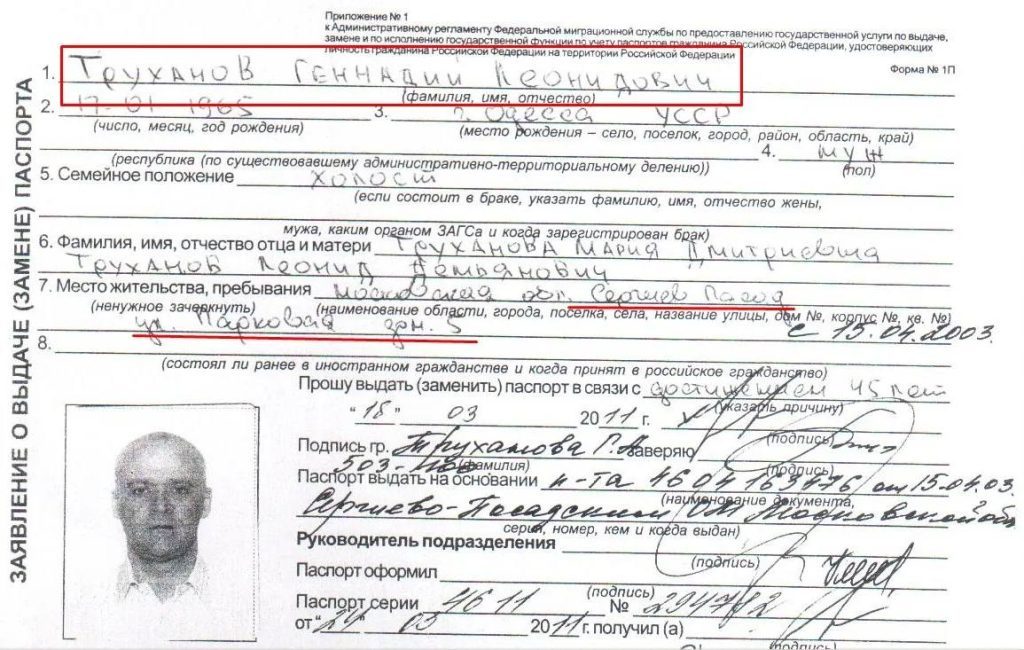 Приложение № 1
к Административному регламенту Федеральной миграционной службы по предоставлению государственной услуги по выдаче,
замене и по исполнению государственной функции по учету паспортов гражданина Российской Федерации, удостоверяющих
личность гражданина Российской Федерации на территории Российской Федерации
Форма № 1П
ЗАЯВЛЕНИЕ О ВЫДАЧЕ (ЗАМЕНЕ) ПАСПОРТА
1. Труханов Геннадий Леонидович
(фамилия, имя, отчество)
2. 17-01 1965 3. г. Одесса УССР
(число, месяц, год рождения) (место рождения – село, поселок, город, район, область, край)
4. муж
(республика (по существовавшему административно-территориальному делению)) (пол)
5. Семейное положение холост
(если состоит в браке, указать фамилию, имя, отчество жены,
мужа, каким органом ЗАГСа и когда зарегистрирован брак)
6. Фамилия, имя, отчество отца и матери Труханова Мария Дмитриевна
Труханов Леонид Демьянович
7. Место жительства, пребывания Московская обл. Сергиев Посад
(ненужное зачеркнуть) (наименование области, города, поселка, села, название улицы, дом №, корпус №, кв. №)
ул. Парковая дом. 5 с 15.04.2003.
8.
(состоял ли ранее в иностранном гражданстве и когда принят в российское гражданство)
Прошу выдать (заменить) паспорт в связи с достижением 45 лет
(указать причину)
“ 18 ” 03 2011 г.
(подпись)
Подпись гр. Труханова Г.Л. заверяю
(фамилия) (подпись)
503-
Паспорт выдать на основании п-та 4604 163476 от 15.04.03.
(наименование документа,
Сергиево-Посадским ОМ Московской обл
серия, номер, кем и когда выдан)
Руководитель подразделения
(подпись)
Паспорт оформил
(подпись)
Паспорт серии 4611 № 294782
от “24” 03 2011 г. получил (а)
(подпись)